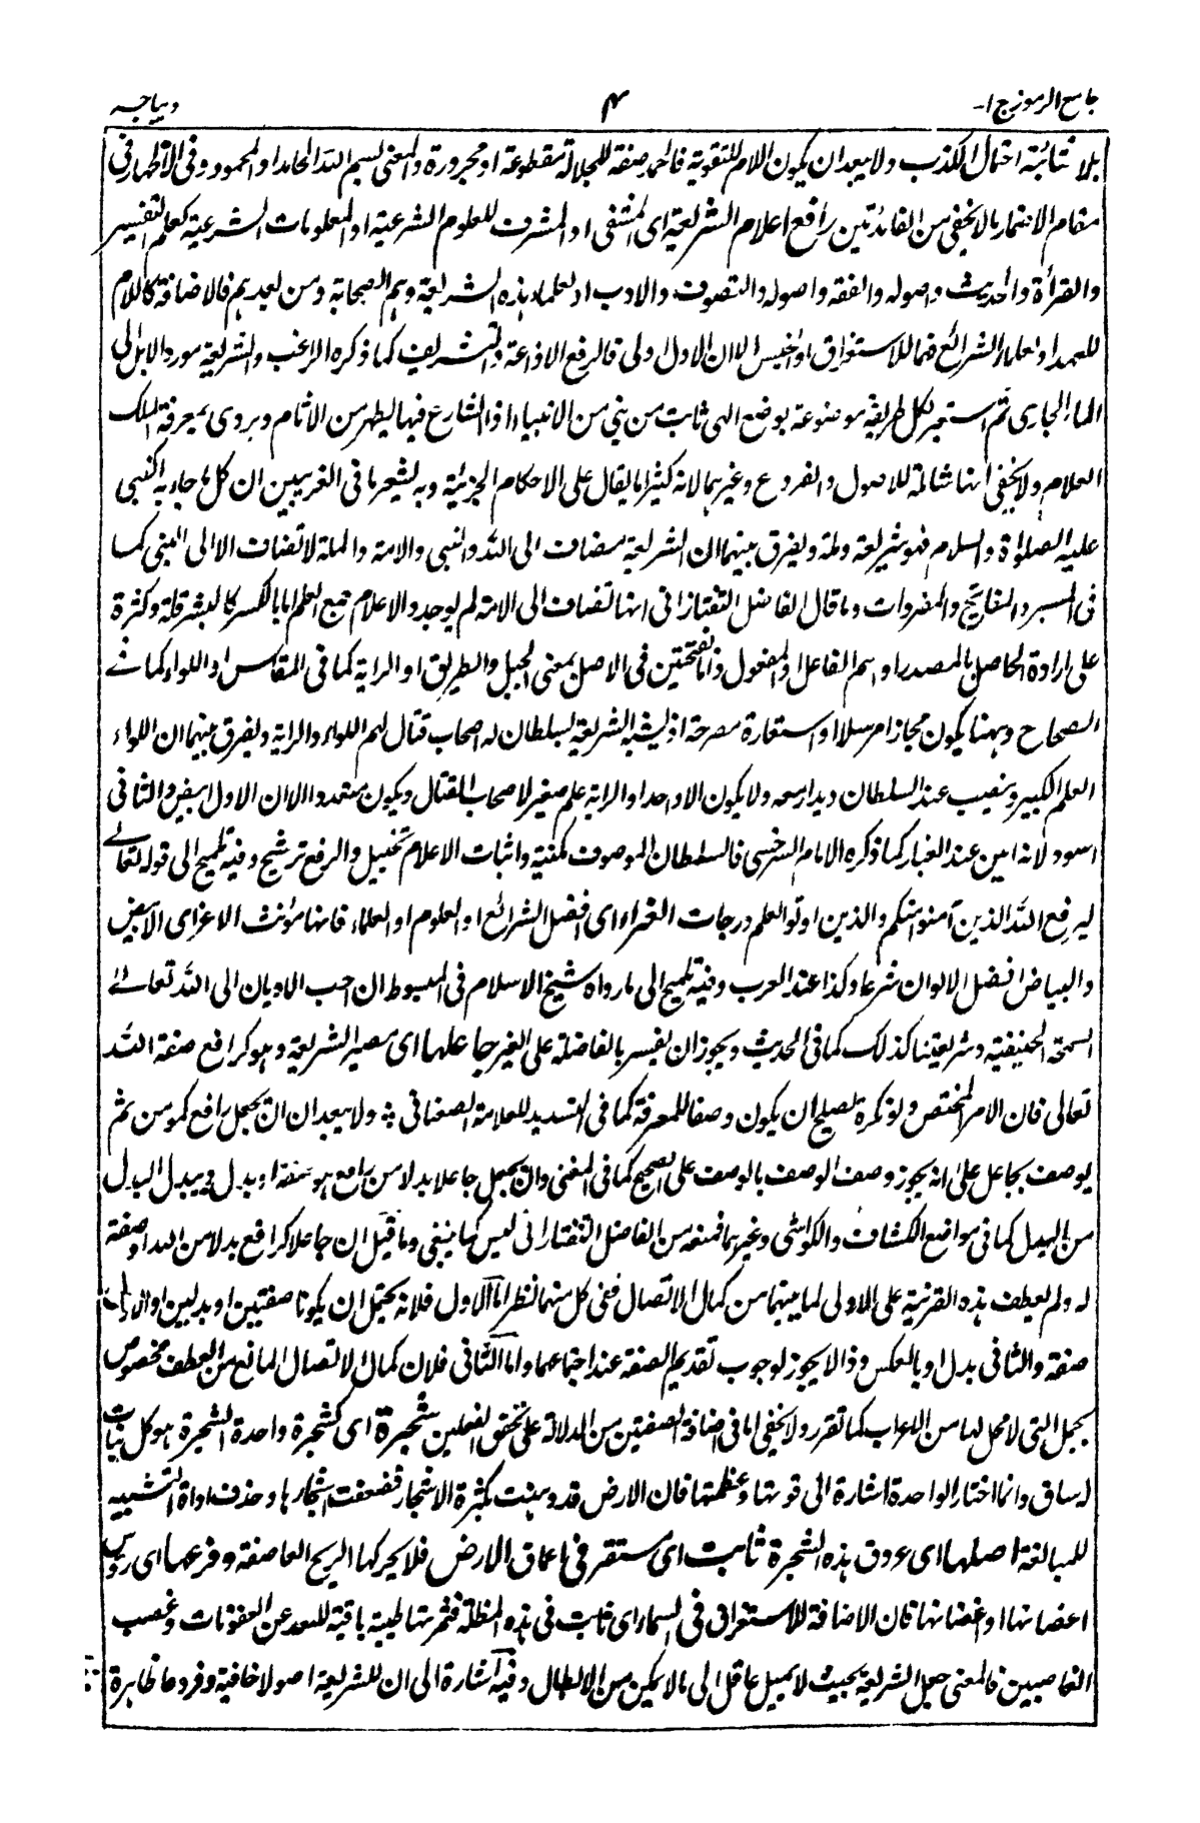 جامع الرموز ج ۱- ۴ دیباجہ
بلا شائبة احتمال الكذب ولا يبعد ان يكون اللام للتقوية فالحمد صفة للجلالة مقطوعة او مجرورة والمعنى بسم الله الحامد او المحمود وفى الاظهار فى
مقام الاضمار ما لا يخفى من الفائدتين رافع اعلام الشريعة اى المتقى او المشرف للعلوم الشرعية او المعلومات الشرعية كعلم التفسير
والقرأة والحديث واصوله والفقه واصوله والتصوف والادب او لعلماء هذه الشريعة وهم الصحابة ومن بعدهم فالاضافة كاللام
للعهد او لعلماء الشرائع فهما للاستغراق او الجنس الا ان الاول اولى فالرفع الاذاعة والتشريف كما ذكره الراغب والشريعة مورد الابل الى
الماء الجارى ثم استعير لكل طريقة موضوعة بوضع الهى ثابت من نبى من الانبياء اذ الشارع فيها ليطهر من الآثام ويروى بمعرفة الملك
العلام ولا يخفى انها شاملة للاصول والفروع وغيرهما لانه كثيرا ما يقال على الاحكام الجزئية وبه يشعر ما فى الغريبين ان كل ما جاء به النبى
عليه الصلوة والسلام فهو شريعة وملة ويفرق بينهما ان الشريعة تضاف الى الله والنبى والامة والملة لا تضاف الا الى النبى كما
فى والمفاتيح والمفردات وما قال الفاضل التفتازانى انها تضاف الى الامة لم يوجد والاعلام جمع العلم اما بالكسر كالبشر قلة وكثرة
على ارادة الحاصل بالمصدر او اسم الفاعل او المفعول واما بفتحتين فى الاصل بمعنى الجبل والطريق او الراية كما فى المقائس او اللواء كما فى
الصحاح وههنا يكون مجازا مرسلا او استعارة مصرحة اذ يشبه الشريعة لسلطان له اصحاب قتال لهم اللواء والراية ويفرق بينهما ان اللواء
العلم الكبير وينصب عند السلطان ولا يكون الا واحدا والراية علم صغير لاصحاب القتال ويكون متعددا الا ان الاول ابيض والثانى
اسود لانه ابين عند الغبار كما ذكره الامام السرخسى فالسلطان الموصوف مكنية واثبات الاعلام تخييل والرفع ترشيح وفيه تلميح الى قوله تعالى
يرفع الله الذين آمنوا منكم والذين اوتوا العلم درجات الغراء اى افضل الشرائع او العلوم او العلماء فانها مؤنث الاغر اى الابيض
والبياض افضل الالوان شرعا وكذا عند العرب وفيه تلميح الى ما رواه شيخ الاسلام فى المبسوط ان احب الاديان الى الله تعالى
السمحة الحنيفية وشريعتنا كذلك كما فى الحديث ويجوز ان يفسر بالفاضلة على الغير جاعلها اى مصير الشريعة وهو كرافع صفة الله
تعالى فان الامر المختص ولو نكرة يصلح ان يكون وصفا للمعرفة كما فى التسديد للعلامة الصغناقى ولا يبعد ان ان يجعل رافع كمومن ثم
يوصف بجاعل على انه يجوز وصف الوصف بالوصف على الصحيح كما فى المغنى وان يجعل جاعلا بدلا من رافع هو صفة او بدل ويبدل البدل
من البدل كما فى مواضع الكشاف والكواشى وغيرهما فمنعه من الفاضل التفتازانى ليس كما ينبغى وما قيل ان جاعلا كرافع بدلا من الله او صفة
له ولم يعطف هذه القرينة على الاولى لما بينهما من كمال الاتصال ففى كل منهما نظر اما الاول فلانه يحتمل ان يكونا صفتين او بدلين او الاول
صفة والثانى بدل او بالعكس وذا لا يجوز لوجوب تقديم الصفة عند اجتماعهما واما الثانى فلان كمال الاتصال المانع من العطف مخصوص
بجمل التى لا محل لها من الاعراب كما تقرر ولا يخفى ما فى اضافة الصفتين من الدلالة على تحقق الفعلين شجرة اى كشجرة واحدة الشجرة هو كل نبات
له ساق وانما اختار الواحدة اشارة الى قوتها وعظمتها فان الارض قد وهنت بكثرة الاشجار فضعفت اشجارها وحذف اداة التشبيه
للمبالغة اصلها اى عروق هذه الشجرة ثابت اى مستقر فى اعماق الارض فلا يحركها الريح العاصفة وفرعها اى رؤس
اغصانها او اغصانها فان الاضافة للاستغراق فى السماء اى ثابت فى هذه المظلة فثمرتها طيبة باقية للبعد عن العفونات وغصب
الغاصبين فالمعنى جعل الشريعة بحيث لا يميل عاقل الى ما لا يكن من الابطال وفيه اشارة الى ان للشريعة اصولا خافية وفروعا ظاهرة